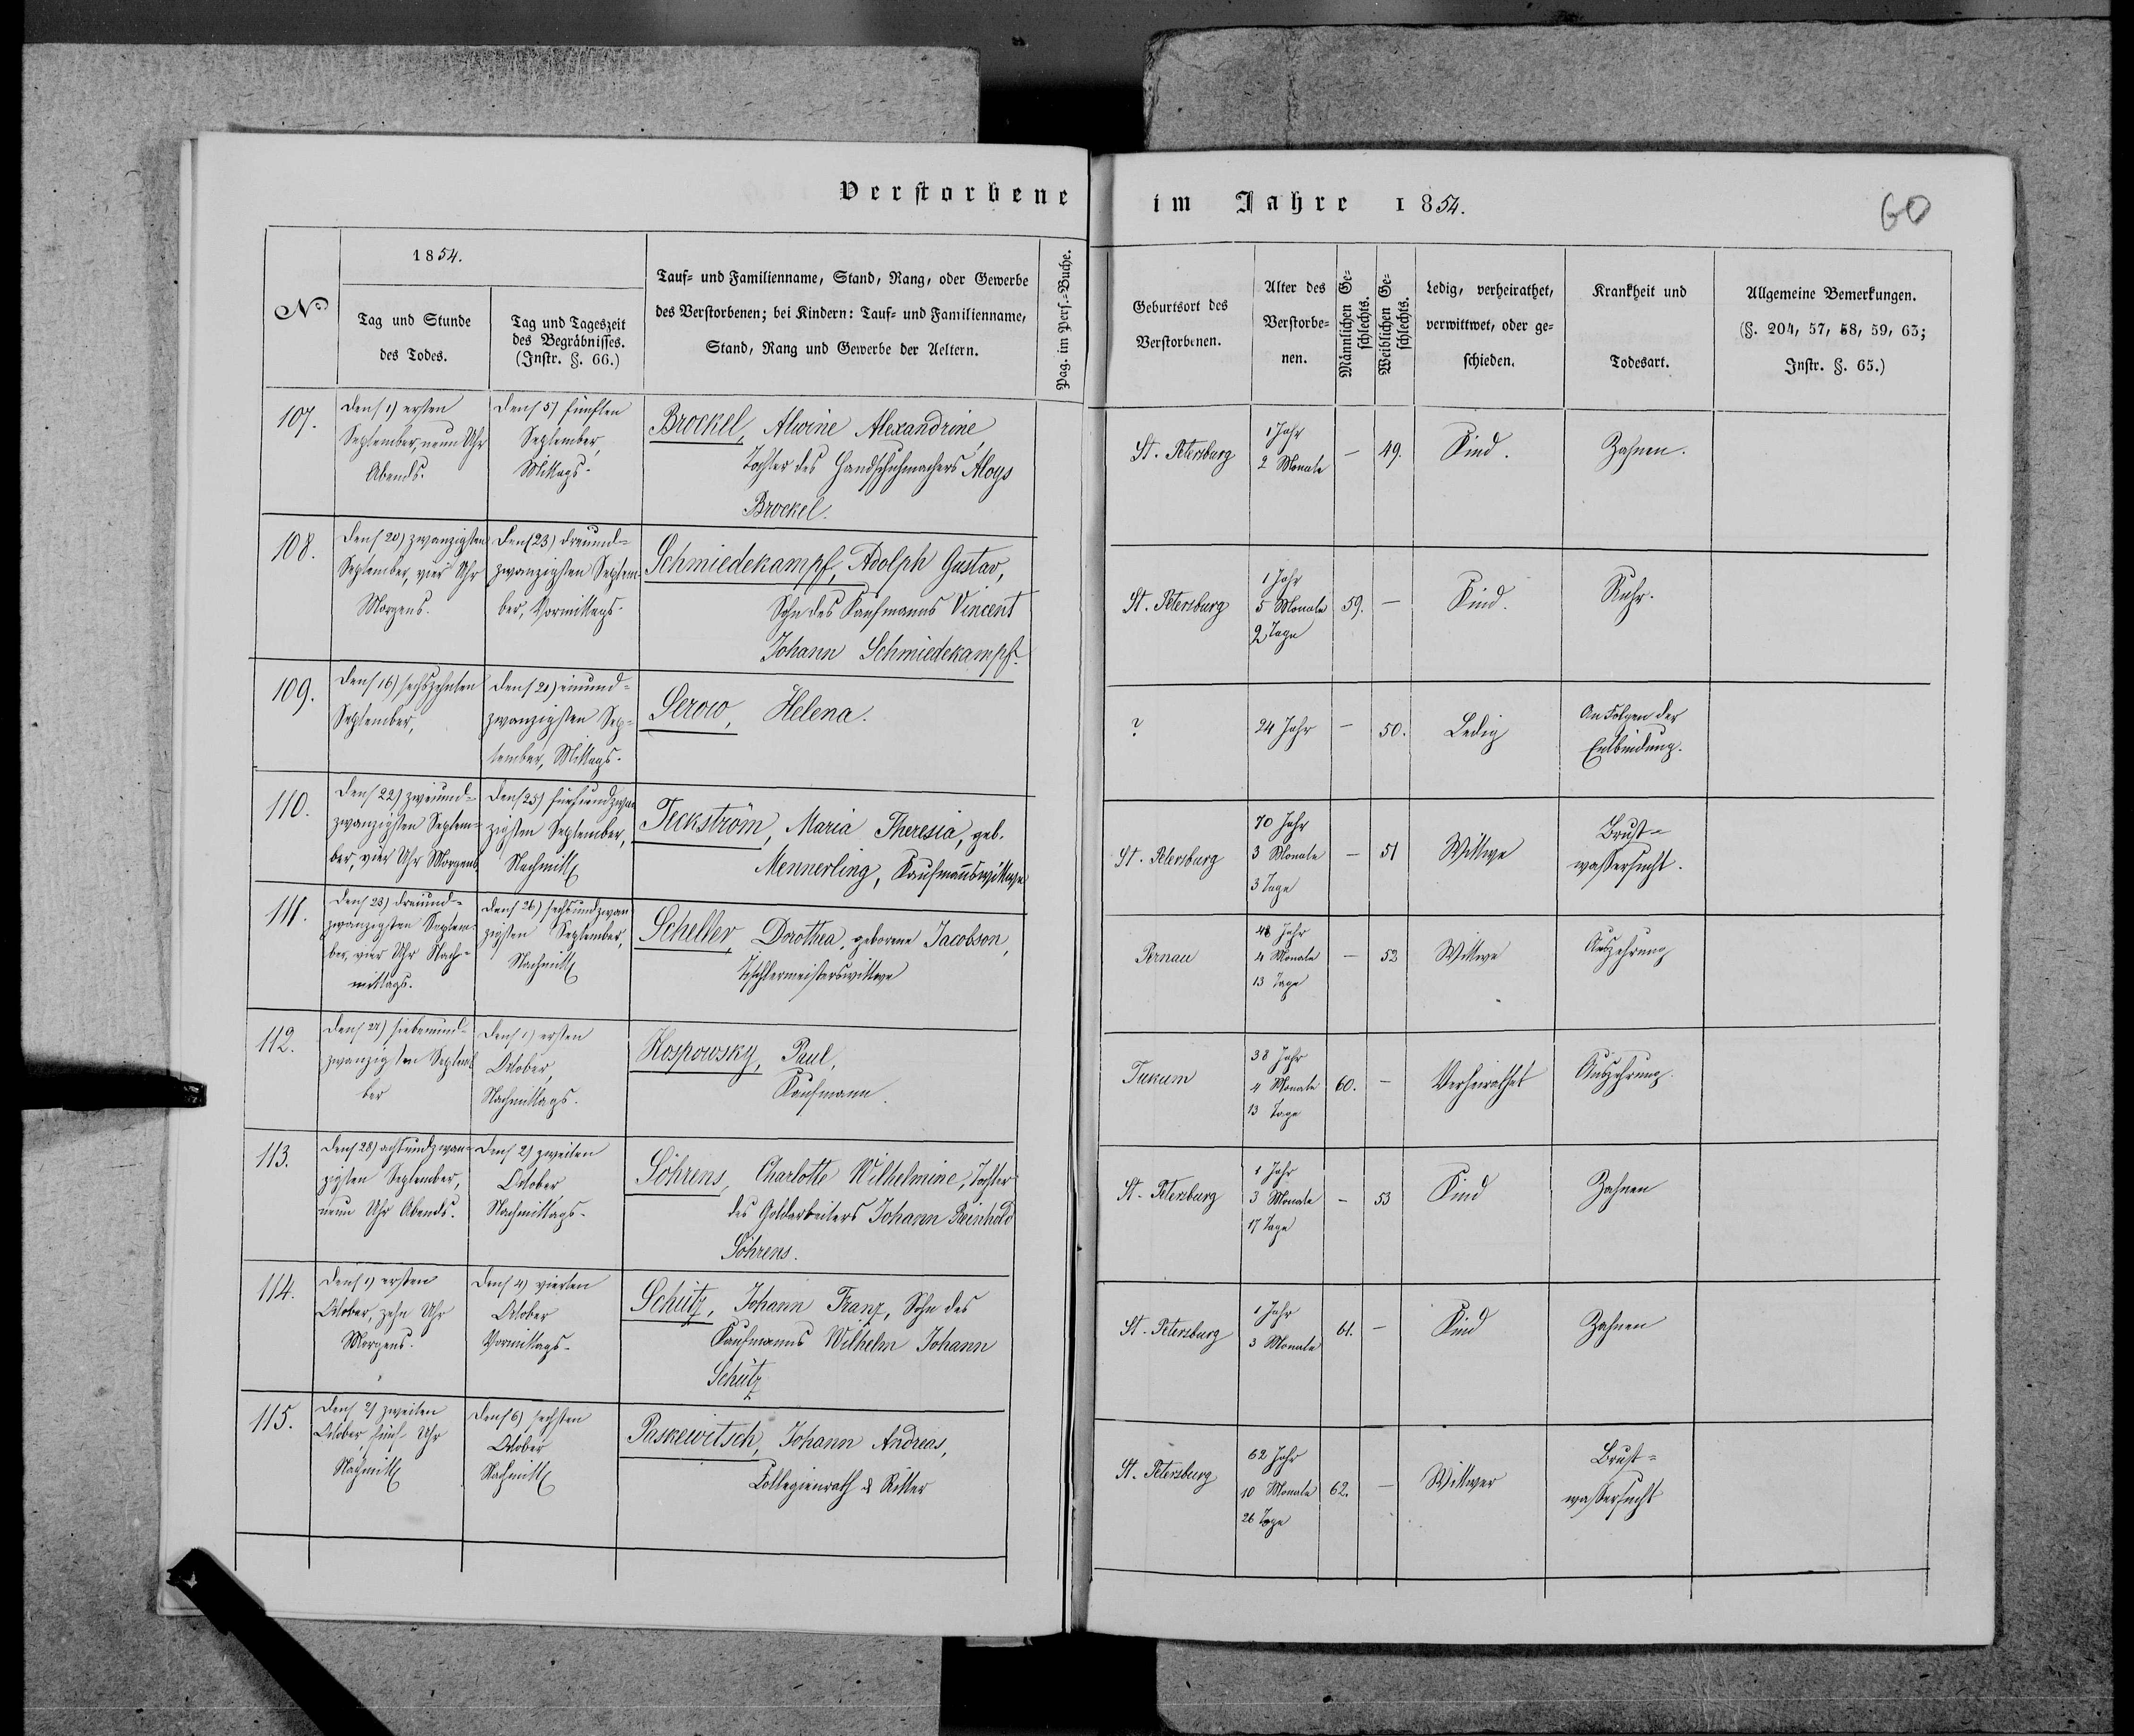 Verstorbene im Jahre 1854.
60
No
1854.
Tag und Stunde
des Todes.
Tag und Tageszeit
des Begräbnisses.
(Instr. §. 66.)
Tauf- und Familienname, Stand, Rang, oder Gewerbe
des Verstorbenen; bei Kindern: Tauf- und Familienname,
Stand, Rang und Gewerbe der Aeltern.
Pag. im Pers.-Buche.
Geburtsort des
Verstorbenen.
Alter des
Verstorbe-
nen.
Männlichen Ge-
schlechts.
Weiblichen Ge-
schlechts.
Ledig, verheirathet,
verwittwet, oder ge-
schieden.
Krankheit und
Todesart.
Allgemeine Bemerkungen.
(§. 204, 57, 58, 59, 63;
Instr. §. 65.)
107.
Den (1) ersten
September, neun Uhr
Abends.
Den (5) fünften
September,
Mittags.
Brockel, Alwine Alexandrine,
Tochter des Handschuhmachers Aloys
Brockel.
St. Petersburg
1 Jahr
2 Monate
—
49.
Kind.
Zahnen.
108.
Den (20) zwanzigsten
September, vier Uhr
Morgens.
Den (23) dreiund-
zwanzigsten Septem-
ber, Vormittags.
Schmiedekampf, Adolph Gustav,
Sohn des Kaufmanns Vincent
Johann Schmiedekampf.
St. Petersburg
1 Jahr
5 Monate
2 Tage
59.
—
Kind.
Ruhr.
109.
Den (16) sechszehnten
September,
Den (21) einund-
zwanzigsten Sep-
tember, Mittags.
Serow, Helena.
?
24 Jahr
—
50.
Ledig
An Folgen der
Entbindung.
110.
Den (22) zweiund-
zwanzigsten Septem-
ber, vier Uhr Morgens
Den (25) fünfundzwan
zigsten September,
Nachmitt
Teckström, Maria Theresia, geb.
Mennerling, Kaufmannswittwe
St. Petersburg
70 Jahr
3 Monate
3 Tage
—
51
Wittwe
Brust-
wassersucht.
111.
Den (23) dreiund-
zwanzigsten Septem-
ber, vier Uhr Nach-
mittags.
Den (26) sechsundzwan
zigsten September,
Nachmitt
Scheller, Dorothea, geborene Jacobson,
Tischlermeisterswittwe
Pernau
48 Jahr
4 Monate
13 Tage
—
52
Wittwe
Auszehrung
112.
Den (27) siebenund-
zwanzigsten Septem
ber
Den (1) ersten
October,
Nachmittags.
Kospowsky, Paul,
Kaufmann.
Tukum
38 Jahr
4 Monate
13 Tage
60.
—
Verheirathet
Auszehrung.
113.
Den (28) achtundzwan-
zigsten September,
neun Uhr Abends.
Den (2) zweiten
October,
Nachmittags.
Söhrens, Charlotte Wilhelmine, Tochter
des Goldarbeiters Johann Reinhold
Söhrens.
St. Petersburg
1 Jahr
3 Monate
17 Tage
—
53
Kind
Zahnen
114.
Den (1) ersten
October, zehn Uhr
Morgens.
Den (4) vierten
October
Vormittags.
Schütz, Johann Franz, Sohn des
Kaufmanns Wilhelm Johann
Schütz
St. Petersburg
1 Jahr
3 Monate
61.
—
Kind
Zahnen
115.
Den (2) zweiten
October, fünf Uhr
Nachmitt
Den (6) sechsten
October
Nachmitt
Paskewitsch, Johann Andreas,
Collegienrath & Ritter
St. Petersburg
62 Jahr
10 Monate
26 Tage
62.
—
Wittwer
Brust-
wassersucht